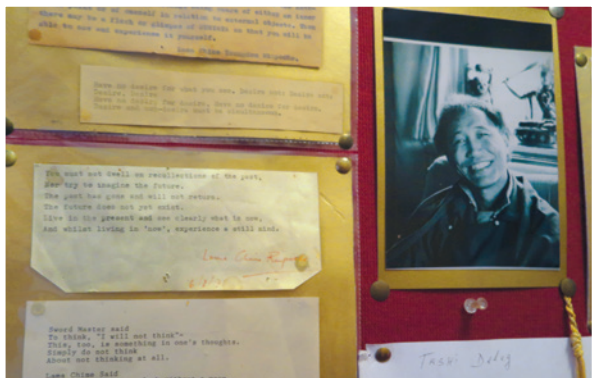 of oneself in relation to external objects, then
there may be a flash or glimpse of so that you will be
able to see and experience it yourself.
Lama Chime
Have no desire for what you see. Desire not. Desire not.
Desire.
Have no desire for desire. Have no desire for desire.
Desire and not-desire must be simultaneous.
You must not dwell on recollections of the past,
Nor try to imagine the future.
The past has gone and will not return.
The future does not yet exist.
Live in the present and see clearly what is now,
And whilst living in 'now', experience a still mind.
Lama Chime
Sword Master said
To think, "I will not think"-
This, too, is something in one's thoughts.
Simply do not think
About not thinking at all.
Lama Chime Said
Tashi Deleg